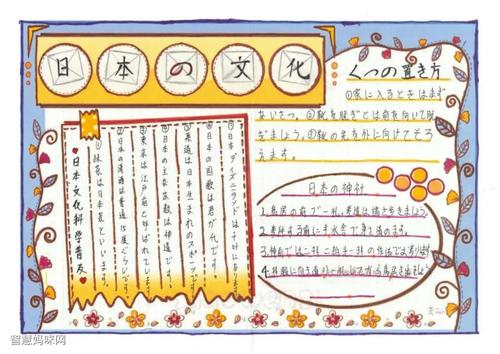 日本の文化
くつの置き方
①家に入るときはまず
あいさつ。②靴を脱ぎとは前を向いて脱
ぎましょう。③靴の先を外に向けてそろ
えます。
⑦日本ディズニーランドは千叶にあります。
⑥日本の国歌は君が代です。
⑤柔道は日本生まれのスポーツです。
④日本の主な宗教は神道です。
③東京は江戸前と呼ばれています。
②日本の消費は普通
①
日本文化科学普友
日本の神社
1.鳥居の前で一礼、参道は端を歩きましょう
2.参拝する前に手水舎で身を清めます。
3.神前では二礼二拍手一礼の作法でお参ります
4.
智慧妈咪网